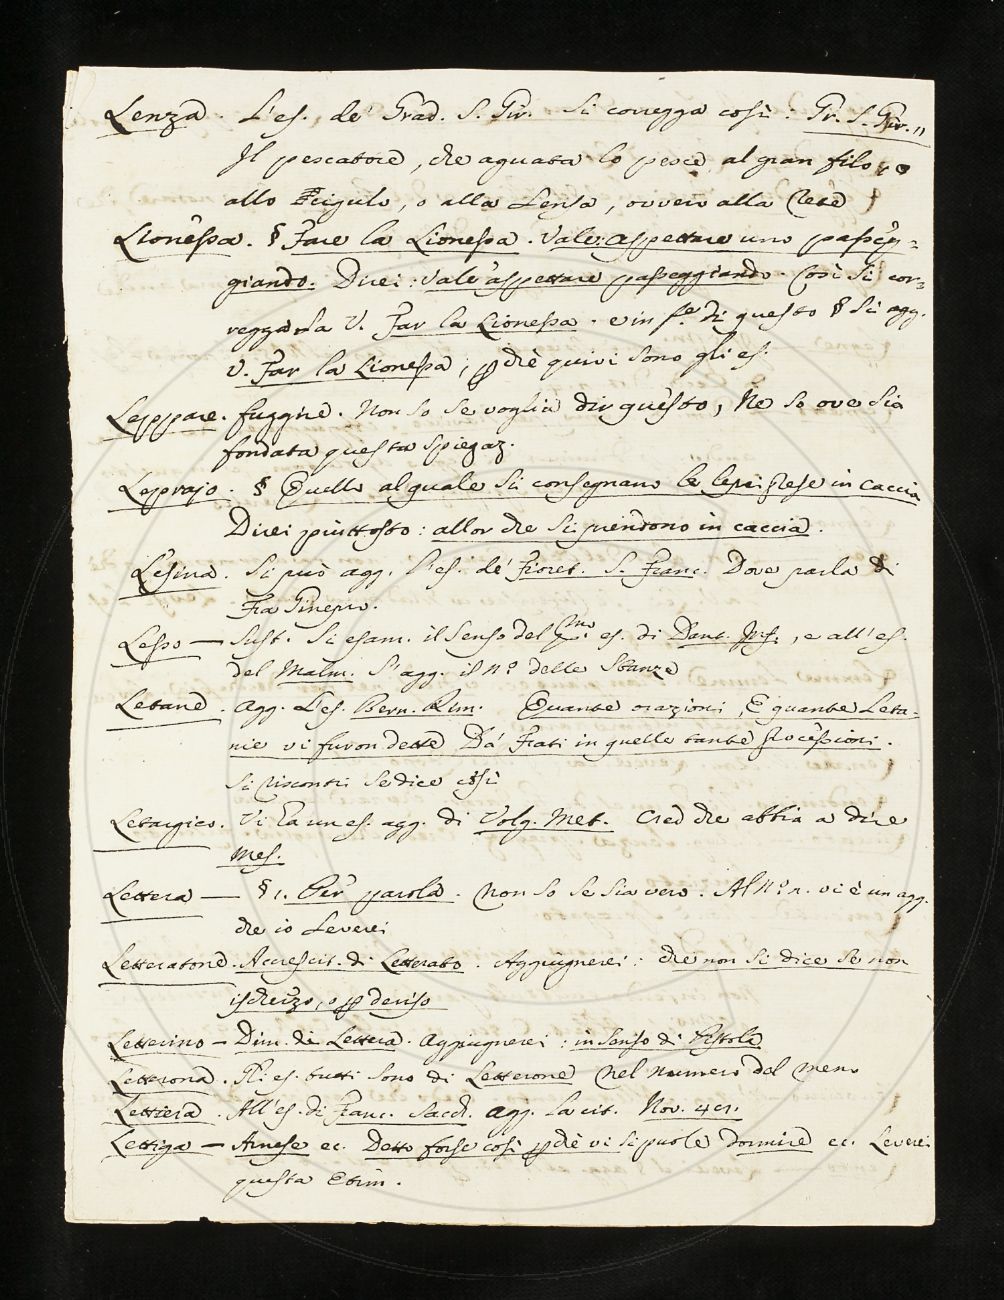 Lenza. L'es. de' Grad. S. Gir. si corregga così: Gr. S. Gir. 11
Il pescatore, che aguata lo pesce al gran filo, o
allo Trigulo, o alla Lensa, ovvero alla Rete
Lionessa. § Fare la Lionessa. Vale: aspettare uno passeg-
giando. Direi: Vale aspettare passeggiando. Così si cor-
regga la V. Far la Lionessa. e in fe. di questo § si agg.
V. Far la Lionessa, pchè quivi sono gli es.
Leppare. fuggire. Non so se voglia dir questo, Nè so ove sia
fondata questa spiegaz.
Leprajo. § Quello al quale si consegnano le lepri prese in caccia
Direi piuttosto: allor che si prendono in caccia.
Lesina. Si può agg. l'es. de' Fioret. S. Franc. Dove parla di
Fra Ginepro.
Lesso — Sust. Si esam. il senso del Pmo. es. di Dant. Inf., e all'es.
del Malm. s'agg. il N.o delle Stanze
Letane. Agg. L'es. Bern. Rim. Quante orazioni, E quante Leta-
nie vi furon dette Da' Frati in quelle tante processioni.
Si riscontri se dice così
Letargico. Vi ha un es. agg. di Volg. Met. Cred che abbia a dire
Mes.
Lettera — § 1. Per parola. Non so se sia vero. Al N.o n. vi è un agg.
che io Leverei
Letteratone. Accrescit. di Letterato. Aggiugnerei: che non si dice se non
ischerzo, o p deriso
Letterino — Dim. di Lettera. Aggiugnerei: in senso di Pistola
Letterona. Gli es. tutti sono di Letterone Nel numero del meno
Lettiera. All'es. di Franc. Sacch. agg. la cit. Nov. 4er.
Lettiga — Arnese ec. Detto forse così pchè vi si puole dormire ec. Leverei
questa Etim.